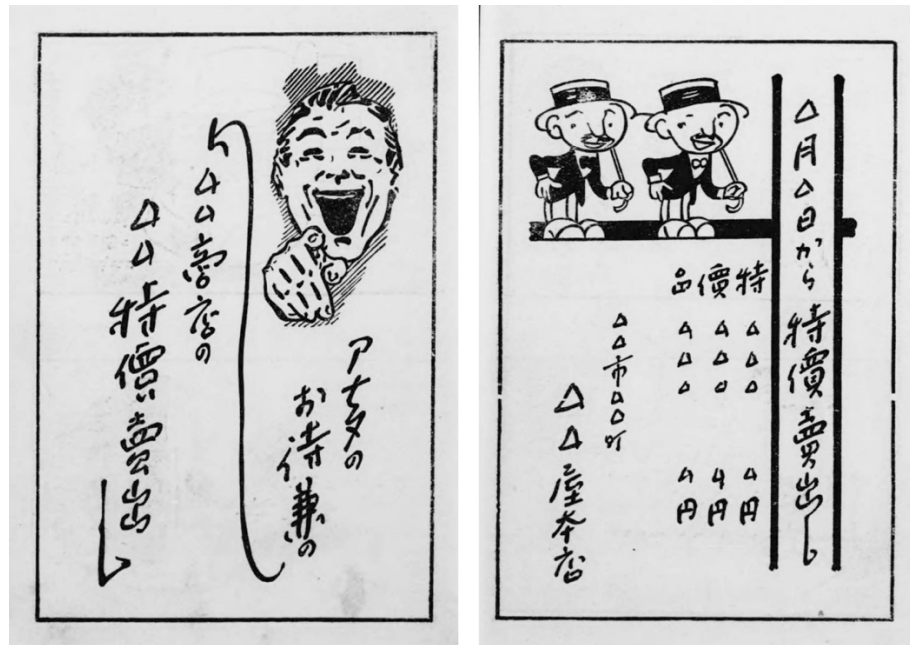 アナタの
お待兼の
△△商店の
△△特價賣出し
△月△日から特價賣出し
特價品
△△○ △円
△△○ △円
△△○ △円
△△市△△町
△△屋本店